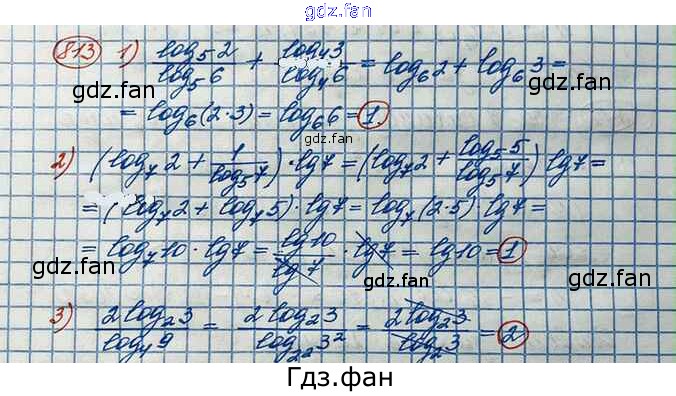 гдз.фан
813 1) log₅2/log₅6 + log₄3/log₄6 = log₆2 + log₆3 =
gdz.fan gdz.fan gdz.fan
= log₆(2·3) = log₆6 = 1.
gdz.fan
2) (log₇2 + 1/log₅7)·lg7 = (log₇2 + log₅5/log₅7) lg7 =
= (log₇2 + log₇5)·lg7 = log₇(2·5)·lg7 =
= log₇10·lg7 = lg10/lg7 · lg7 = lg10 = 1
gdz.fan gdz.fan gdz.fan
3) 2log₂3/log₄9 = 2log₂3/log₂²3² = 2log₂3/log₂3 = 2
Гдз.фан